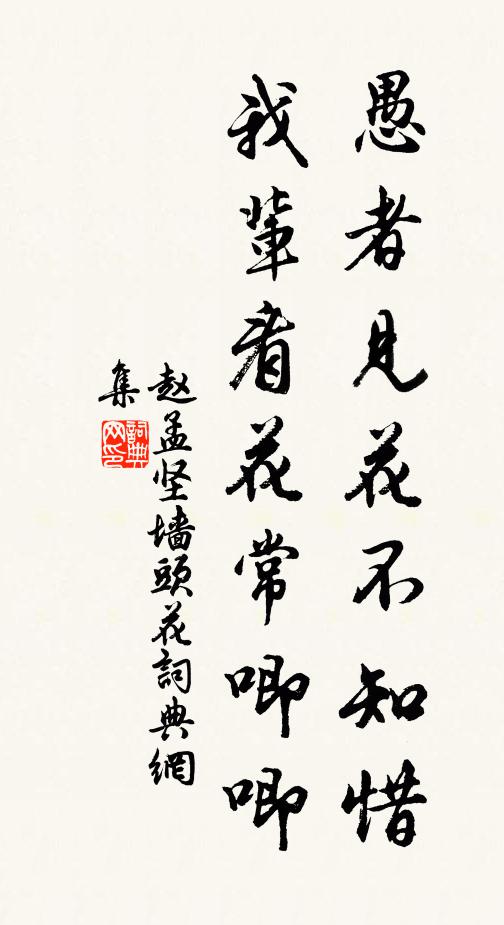 愚者見花不知惜
我輩看花常唧唧
赵孟坚墙頭花詞典網
集
詞典網印